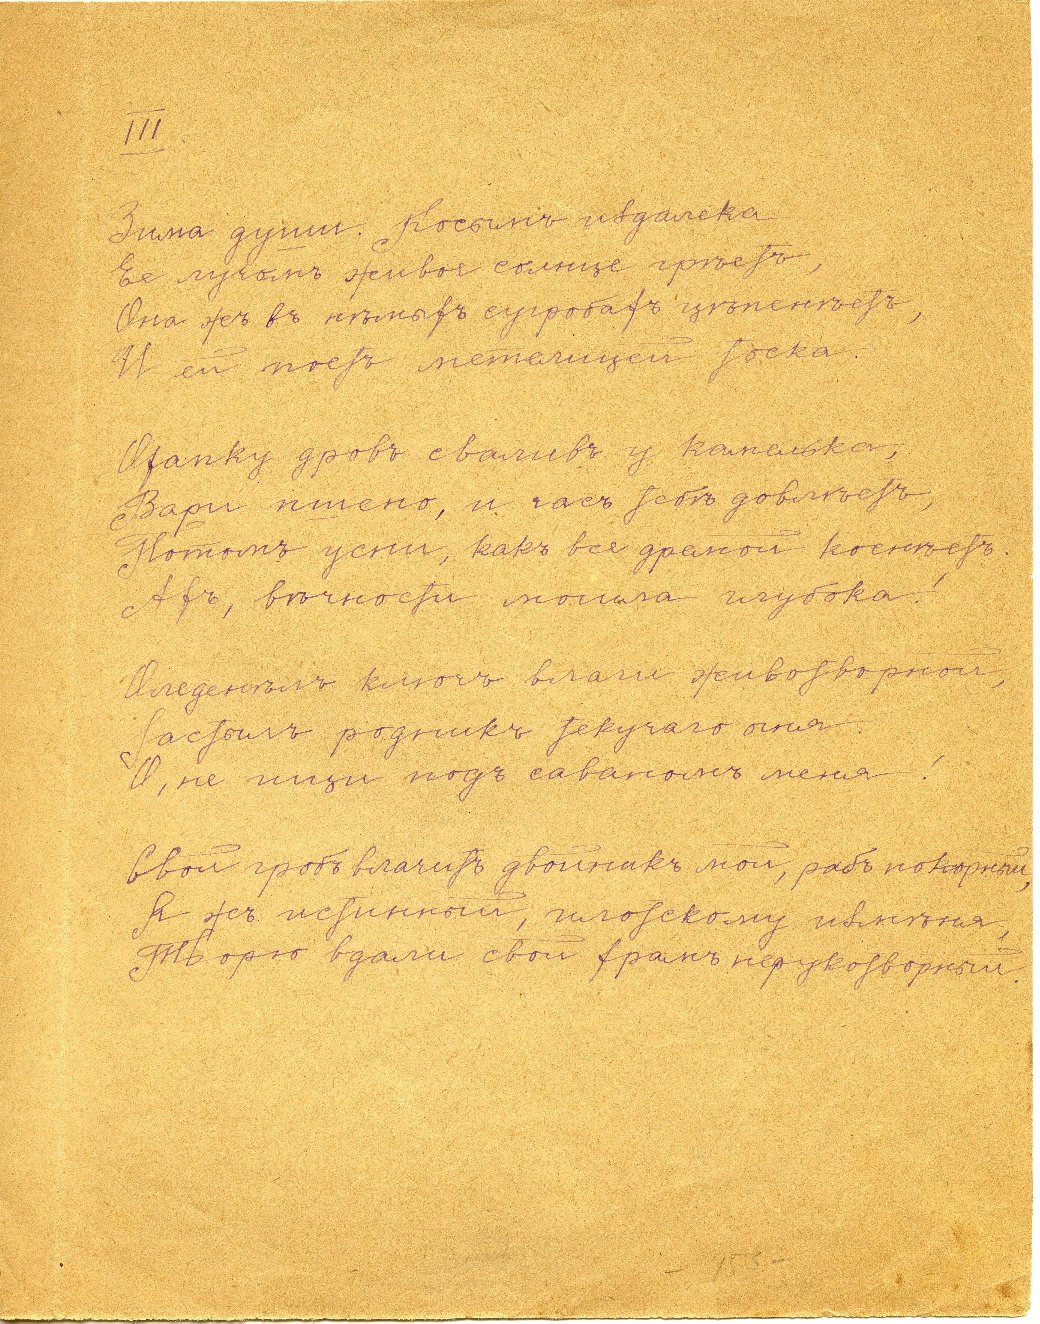 III
Зима души. Косымъ издалека
Ее лучомъ живое солнце грѣетъ,
Она жъ въ нѣмыхъ сугробахъ цѣпенѣетъ,
И ей поетъ метелицей тоска.
Охапку дровъ сваливъ у камелька,
Вари пшено, и часъ тебѣ довлѣетъ,
Потомъ усни, какъ все дремой коснѣетъ.
Ахъ, вѣчности могила глубока!
Оледенѣлъ ключъ влаги животворной,
Застылъ родникъ текучаго огня
О, не ищи подъ саваномъ меня!
Свой гробъ влачитъ двойникъ мой, рабъ покорный,
Я жъ истинный, плотскому измѣня,
Творю вдали свой храмъ нерукотворный.
- 155 -